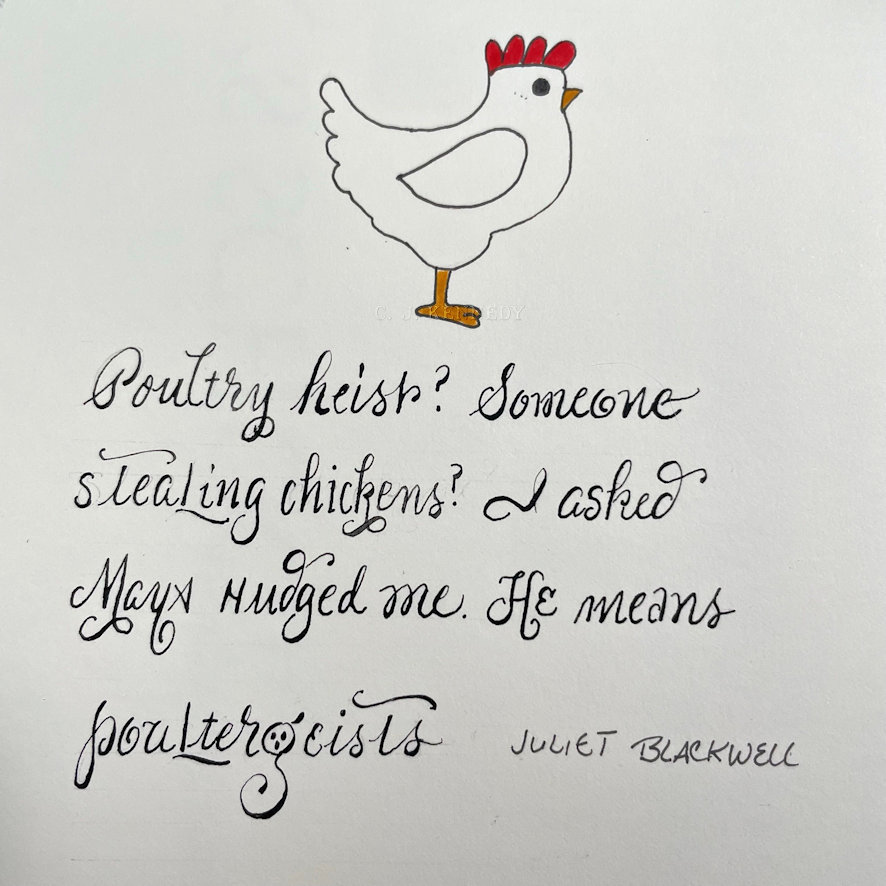 C. J. KENNEDY
Poultry heist? Someone
stealing chickens? I asked
Maya nudged me. He means
poultergeists JULIET BLACKWELL